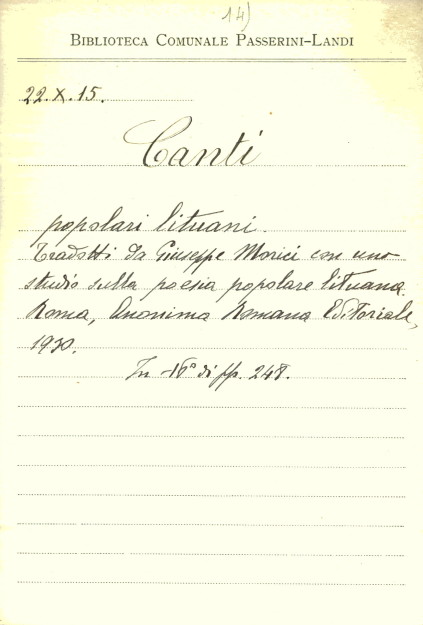 14)
BIBLIOTECA COMUNALE PASSERINI-LANDI
22.X.15.
Canti
popolari lituani.
Tradotti da Giuseppe Morici con uno
studio sulla poesia popolare lituana.
Roma, Anonima Romana Editoriale,
1930.
In -16° di pp. 248.